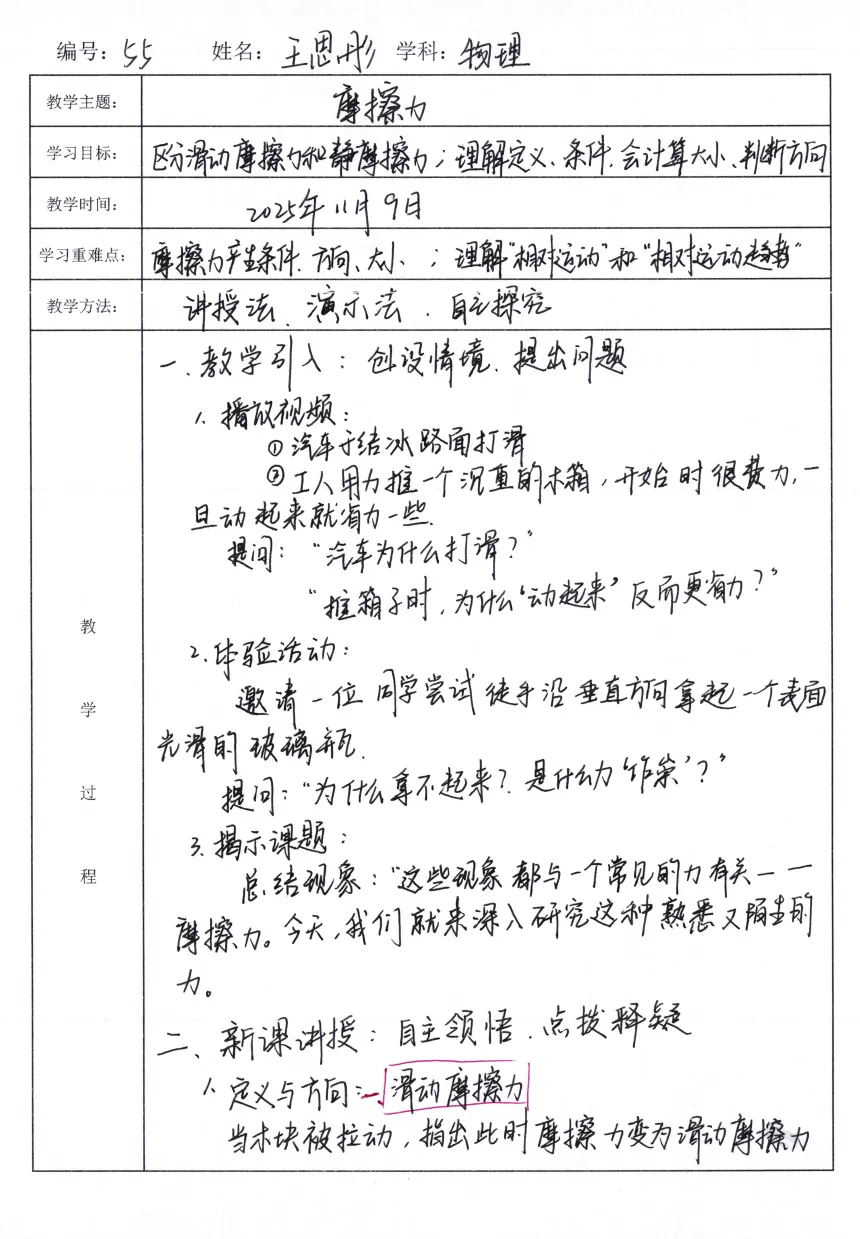 编号：55 姓名：王思彤 学科：物理
教学主题： 摩擦力
学习目标： 区分滑动摩擦力和静摩擦力；理解定义、条件、会计算大小、判断方向
教学时间： 2025年11月9日
学习重难点： 摩擦力产生条件、方向、大小、；理解“相对运动”和“相对运动趋势”
教学方法： 讲授法、演示法、自主探究
教学过程
一、教学引入：创设情境、提出问题
1. 播放视频：
①汽车于结冰路面打滑
②工人用力推一个沉重的木箱，开始时很费力，一
旦动起来就省力一些.
提问：“汽车为什么打滑？”
“推箱子时，为什么‘动起来’反而更省力？”
2.体验活动：
邀请一位同学尝试徒手沿垂直方向拿起一个表面
光滑的玻璃瓶.
提问：“为什么拿不起来？是什么力‘作祟’？”
3.揭示课题：
总结现象：“这些现象都与一个常见的力有关——
摩擦力。今天，我们就来深入研究这种熟悉又陌生的
力。
二、新课讲授：自主领悟、点拨释疑
1. 定义与方向：滑动摩擦力
当木块被拉动，指出此时摩擦力变为滑动摩擦力